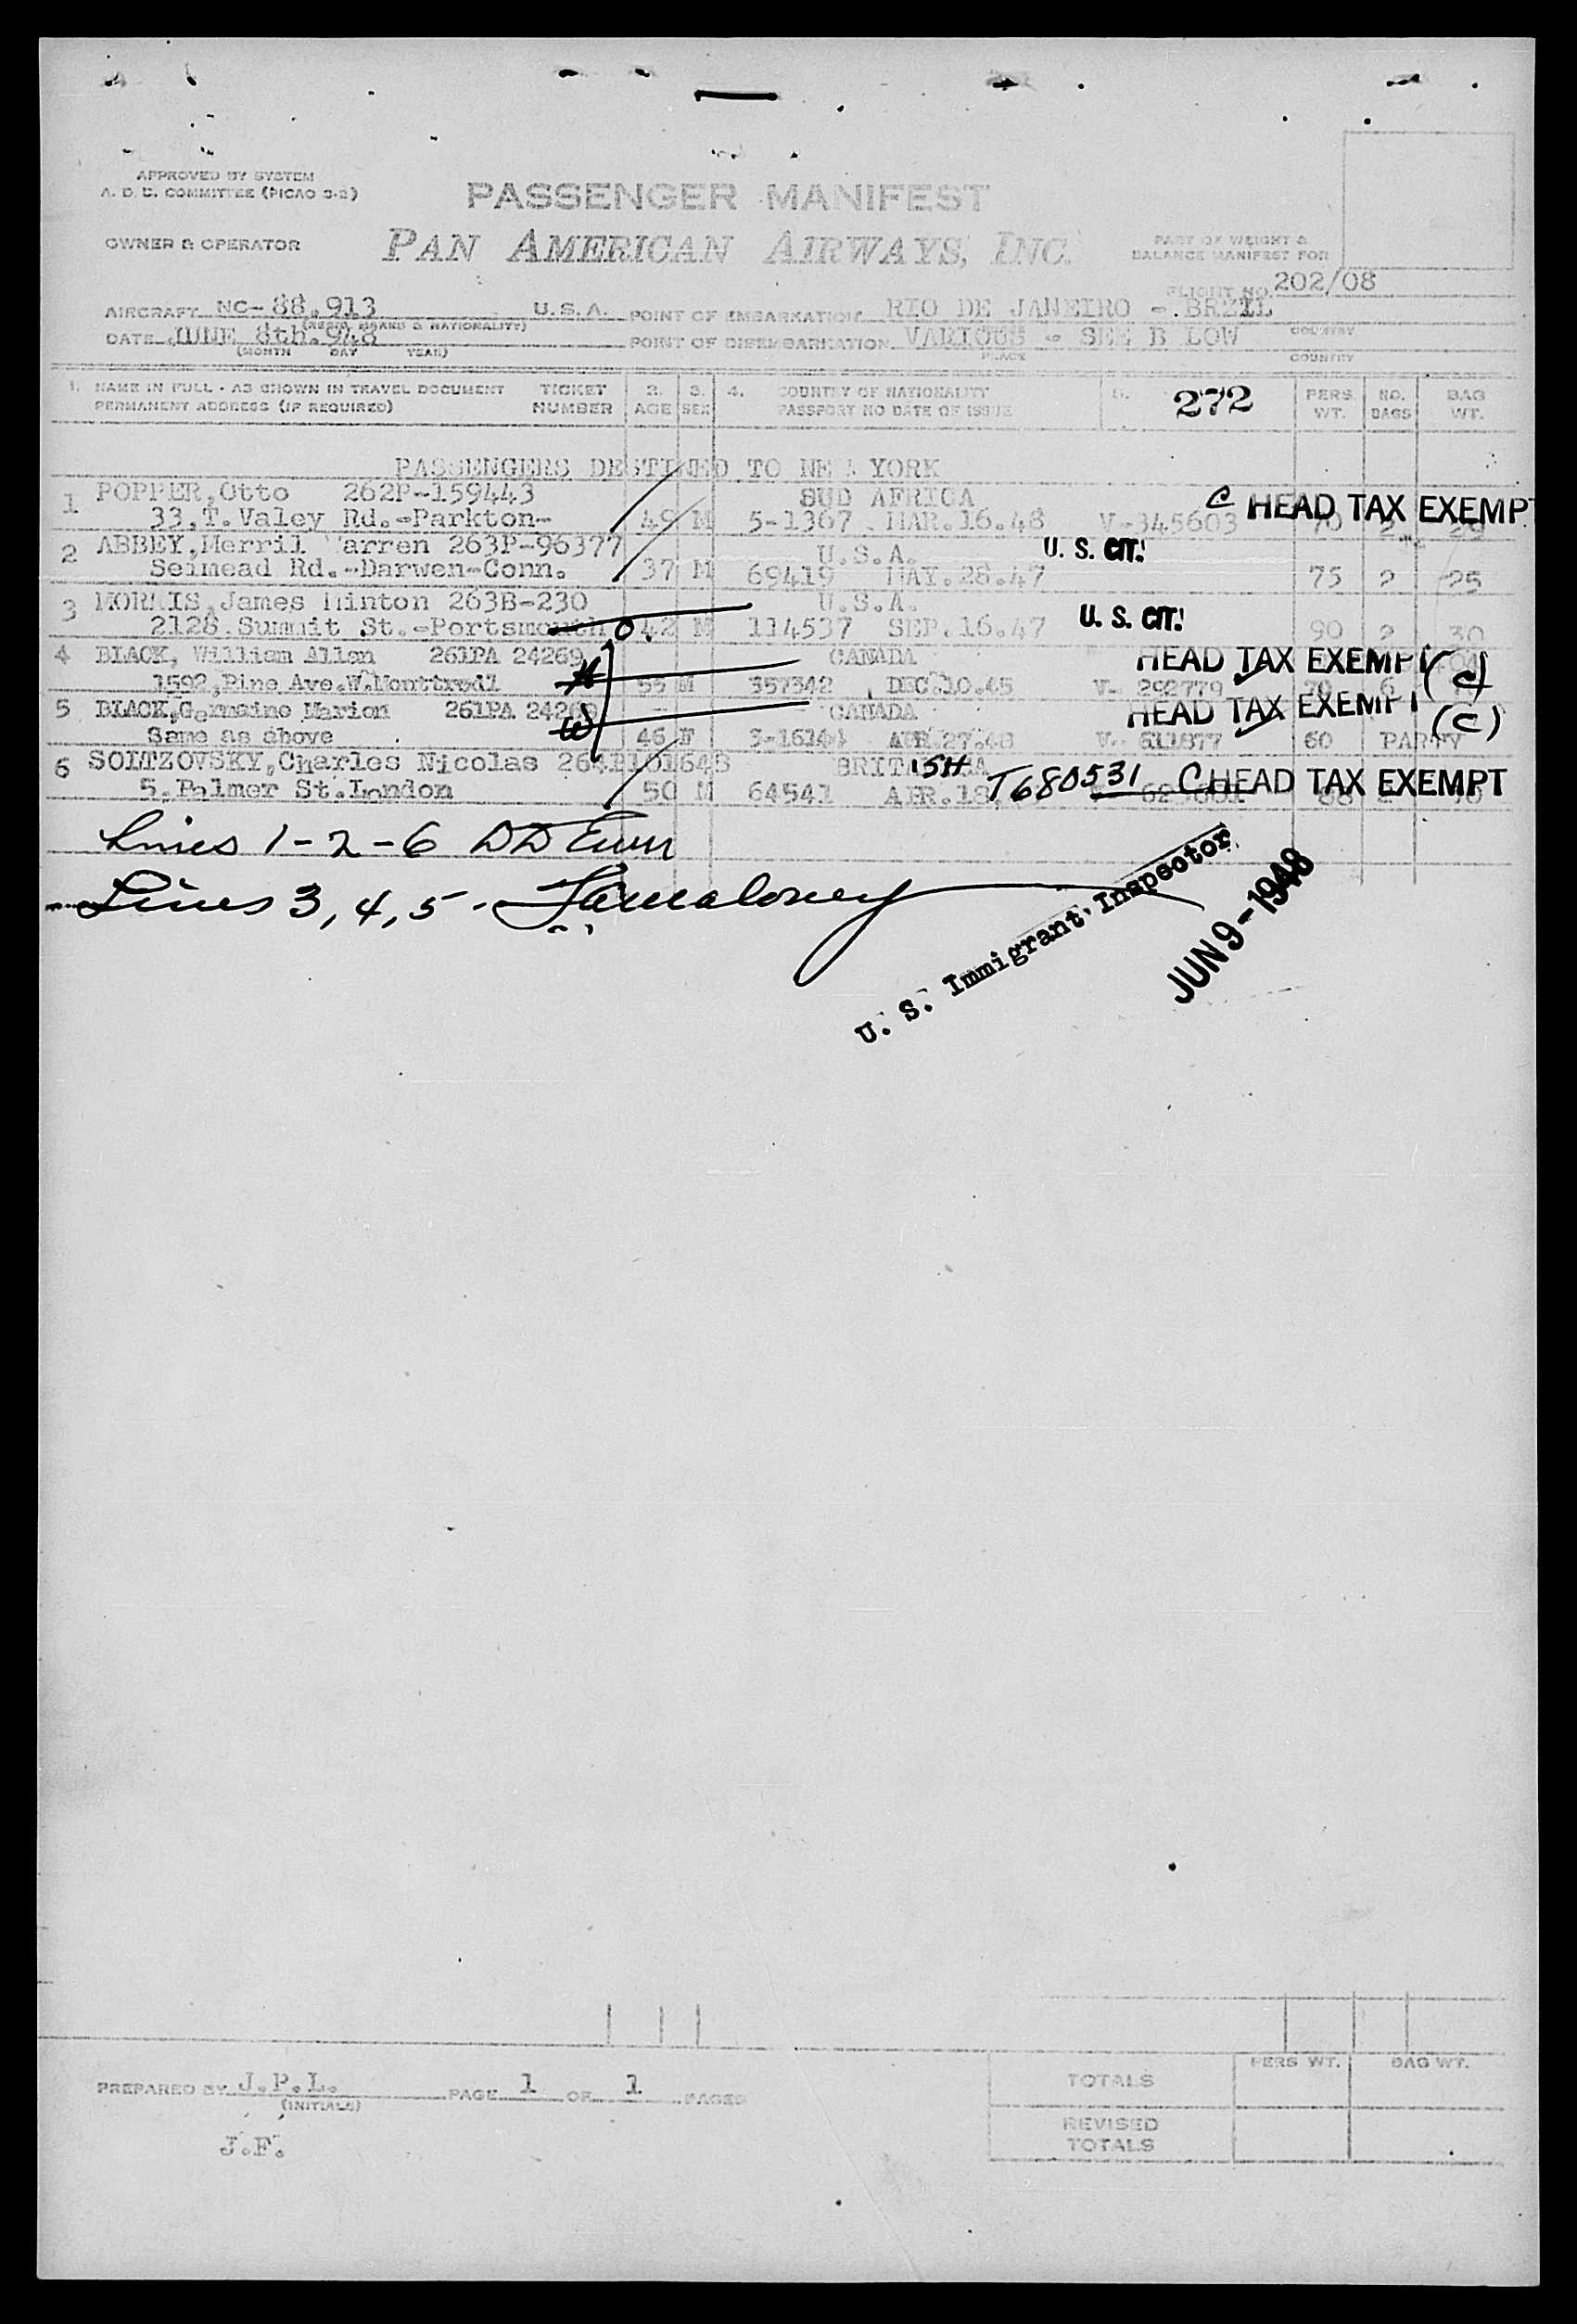 APPROVED BY SYSTEM
A. D. C. COMMITTEE (PICAO 3-2)
PASSENGER MANIFEST
OWNER & OPERATOR
PAN AMERICAN AIRWAYS, INC.
PART OF WEIGHT &
BALANCE MANIFEST FOR
FLIGHT NO. 202/08
AIRCRAFT NC-88.913 U.S.A. POINT OF EMBARKATION RIO DE JANEIRO - BRZIL
(REGIS. MARKS & NATIONALITY) COUNTRY
DATE JUNE 8th.948 POINT OF DISEMBARKATION VARIOUS - SEE B LOW
(MONTH DAY YEAR) PLACE COUNTRY
1. NAME IN FULL - AS SHOWN IN TRAVEL DOCUMENT TICKET 2. 3. 4. COUNTRY OF NATIONALITY 5. 272 PERS. NO. BAG
PERMANENT ADDRESS (IF REQUIRED) NUMBER AGE SEX PASSPORT NO DATE OF ISSUE WT. BAGS WT.
PASSENGERS DESTINED TO NE YORK
1 POPPER,Otto 262P-159443 SUD AFRICA C HEAD TAX EXEMPT
33,T.Valey Rd.-Parkton- 49 M 5-1367 MAR.16.48 V-345603 70 2
2 ABBEY,Merril Warren 263P-96377 U.S.A. U. S. CIT.
Selmead Rd.-Darwen-Conn. 37 M 69419 MAY.28.47 75 2 25
3 MORRIS,James Hinton 263B-230 U.S.A. U. S. CIT.
2128.Summit St.-Portsmouth 42 M 114537 SEP.16.47 90 2 30
4 BLACK, William Allan 261PA 24269 CANADA HEAD TAX EXEMPT (C)
1592,Pine Ave.W.Monttreal 55 M 357342 DEC.10.45 V- 292779 70 6
5 BLACK,Germaine Marion 261PA 24269 CANADA HEAD TAX EXEMPT (C)
Same as above 46 F 3-16144 APR.27.48 V- 611877 60 PARTY
6 SOLTZOVSKY,Charles Nicolas BRIT ISH T680531 C HEAD TAX EXEMPT
5.Palmer St.London 50 M 64541 APR.18.
Lines 1-2-6
Lines 3, 4, 5 -
U. S. Immigrant Inspector
JUN 9-1948
PREPARED BY J.P.L. PAGE 1 OF 1 PAGES
(INITIALS)
J.F.
PERS WT. BAG WT.
TOTALS
REVISED
TOTALS